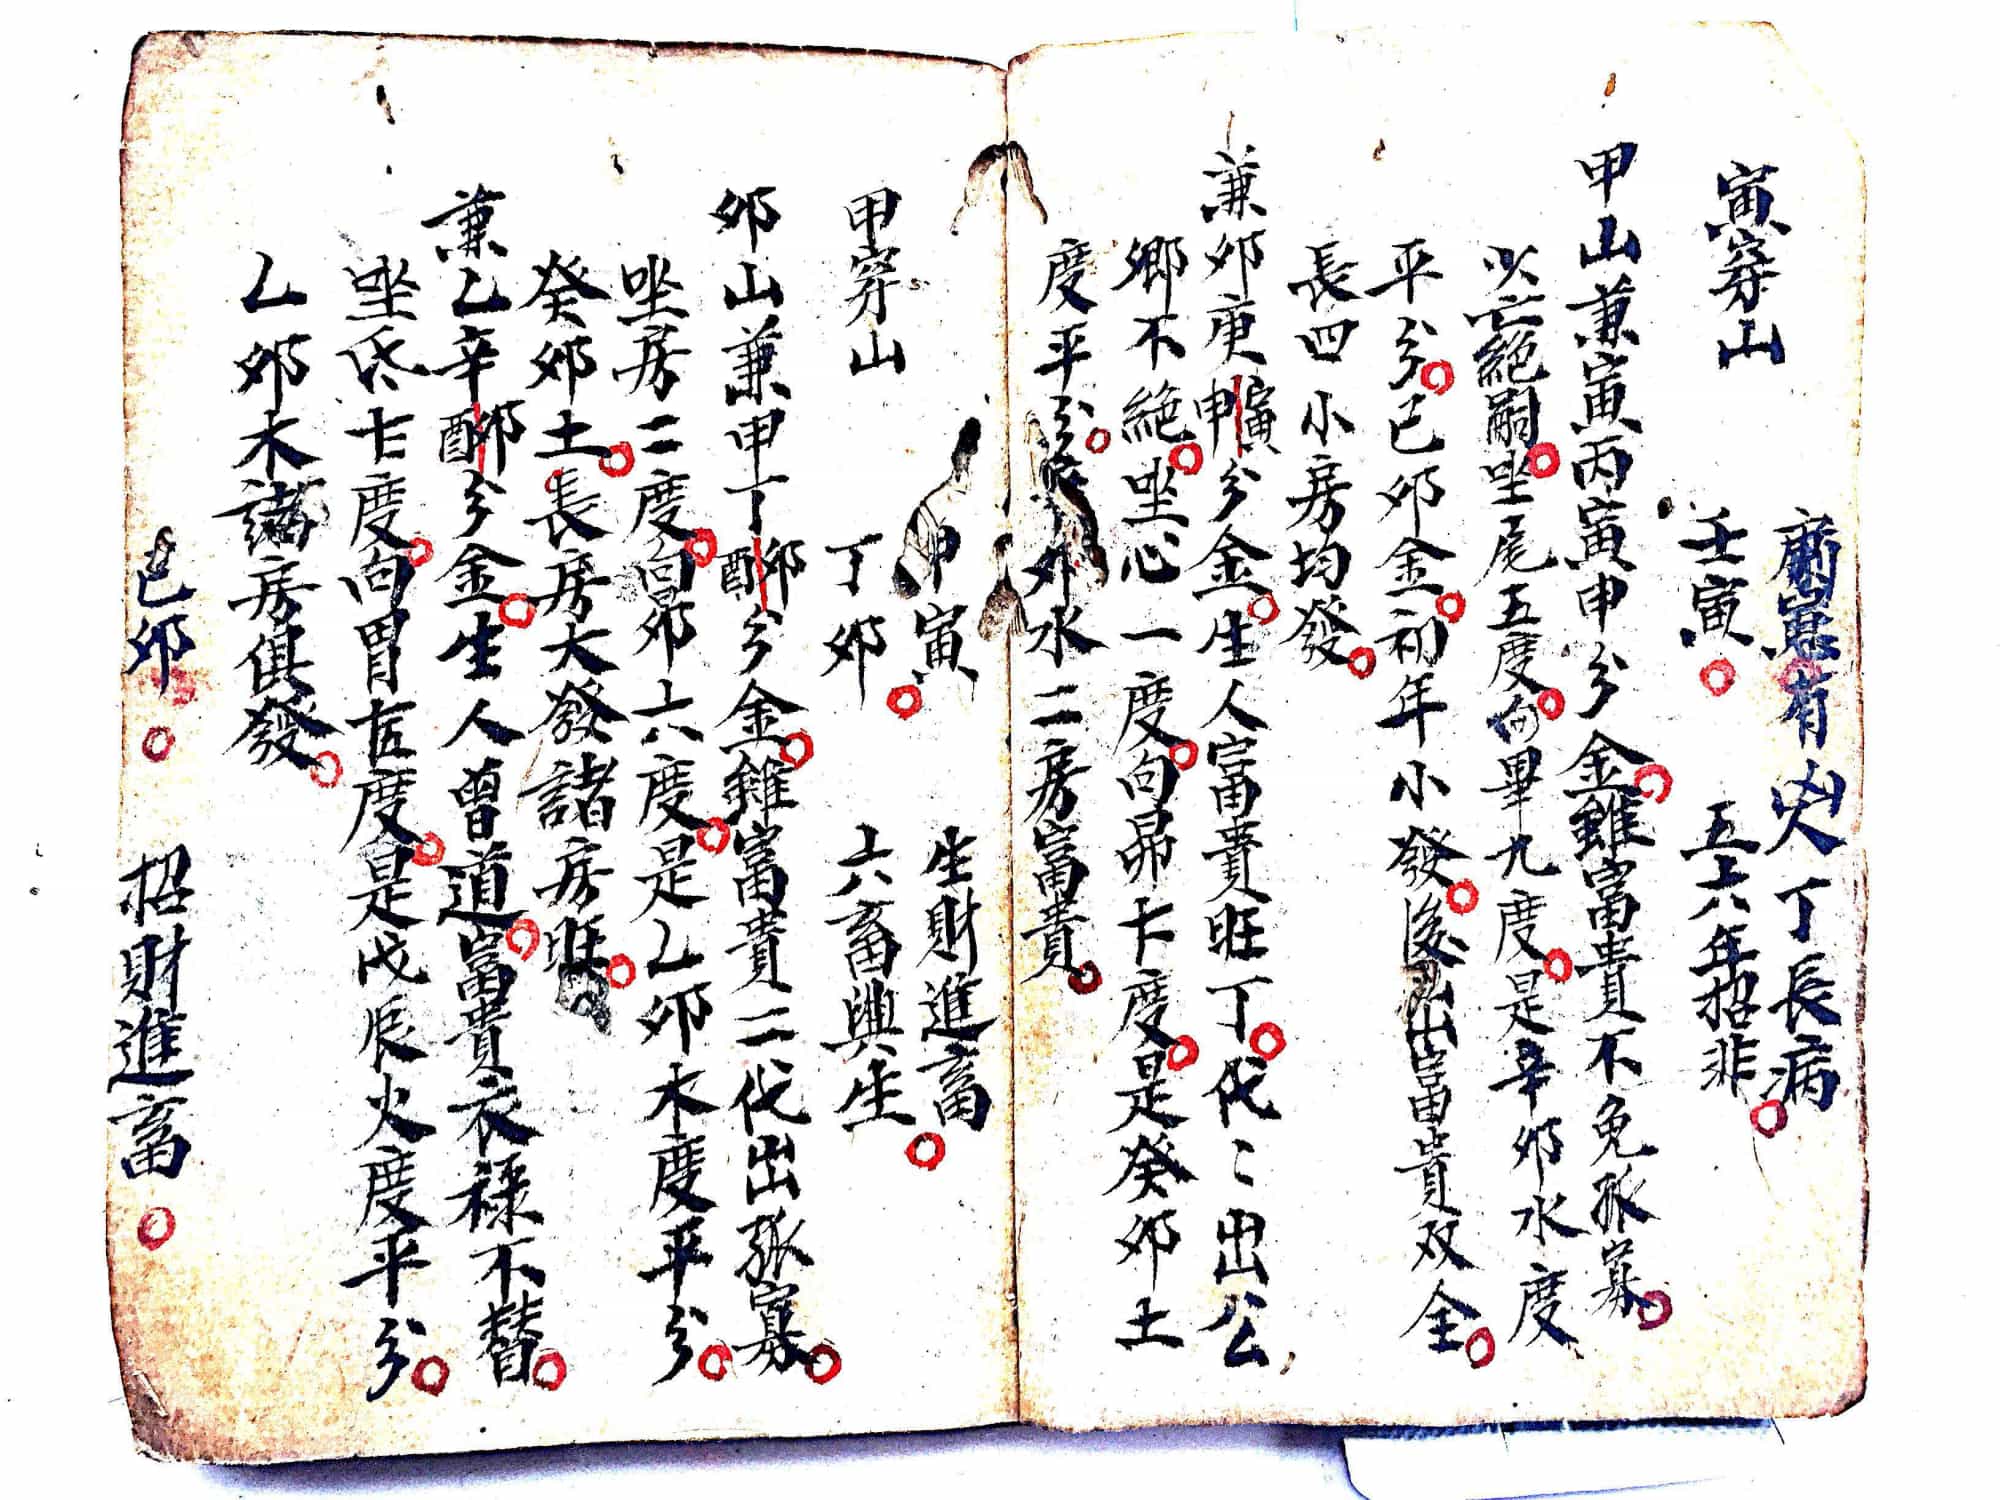 有凶人丁長病
寅穿山 壬寅 五六年招非
甲山兼寅丙寅申分金雖富貴不免孤寡
以亡絕嗣坐尾五度向畢九度是辛卯水度
平分已卯金初年小發後出富貴双全
長四小房均發
兼卯庚寅申分金生人富貴旺丁代〻出公
鄉不絕坐心一度向昴七度是癸卯土
度平分 卯水二房富貴
甲寅 生財進畜
甲穿山 丁卯 六畜興生
卯山兼甲丁卯酉分金雖富貴二代出孤寡
坐房二度向昴六度是乙卯木度平分
癸卯土長房大發諸房旺
兼乙辛卯酉分金生人曾道富貴衣祿不替
坐氐七度向胃五度是戊辰火度平分
乙卯木諸房俱發
已卯 招財進畜